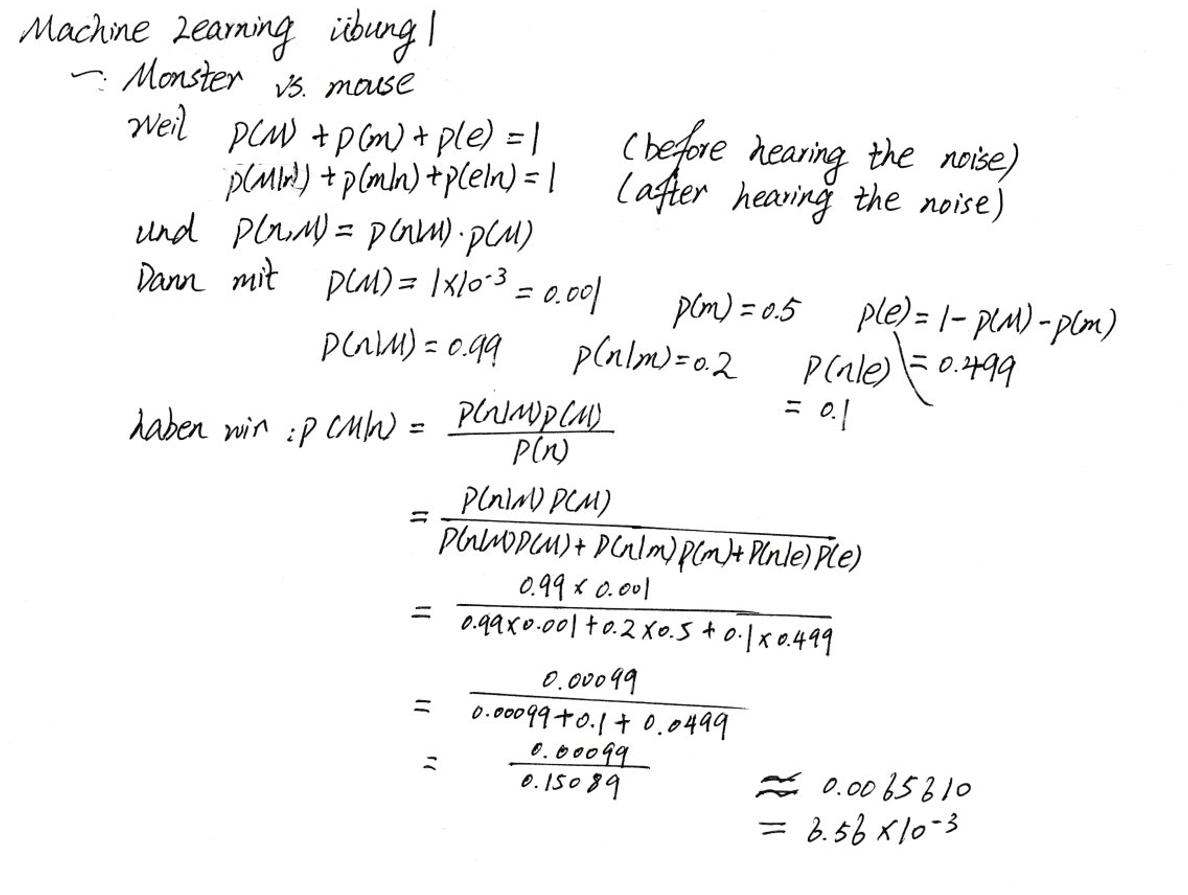 Machine Learning übung 1
一: Monster vs. mouse
Weil p(M) + p(m) + p(e) = 1 (before hearing the noise)
p(M|n) + p(m|n) + p(e|n) = 1 (after hearing the noise)
und p(n,M) = p(n|M)·p(M)
Dann mit p(M) = 1×10⁻³ = 0.001 p(m) = 0.5 p(e) = 1 - p(M) - p(m)
= 0.499
p(n|M) = 0.99 p(n|m) = 0.2 p(n|e)
= 0.1
haben wir : p(M|n) = p(n|M)p(M) / p(n)
= p(n|M) p(M) / p(n|M)p(M) + p(n|m)p(m) + p(n|e)p(e)
= 0.99 × 0.001 / 0.99×0.001 + 0.2×0.5 + 0.1×0.499
= 0.00099 / 0.00099 + 0.1 + 0.0499
= 0.00099 / 0.15089
≈ 0.0065610
= 6.56 × 10⁻³